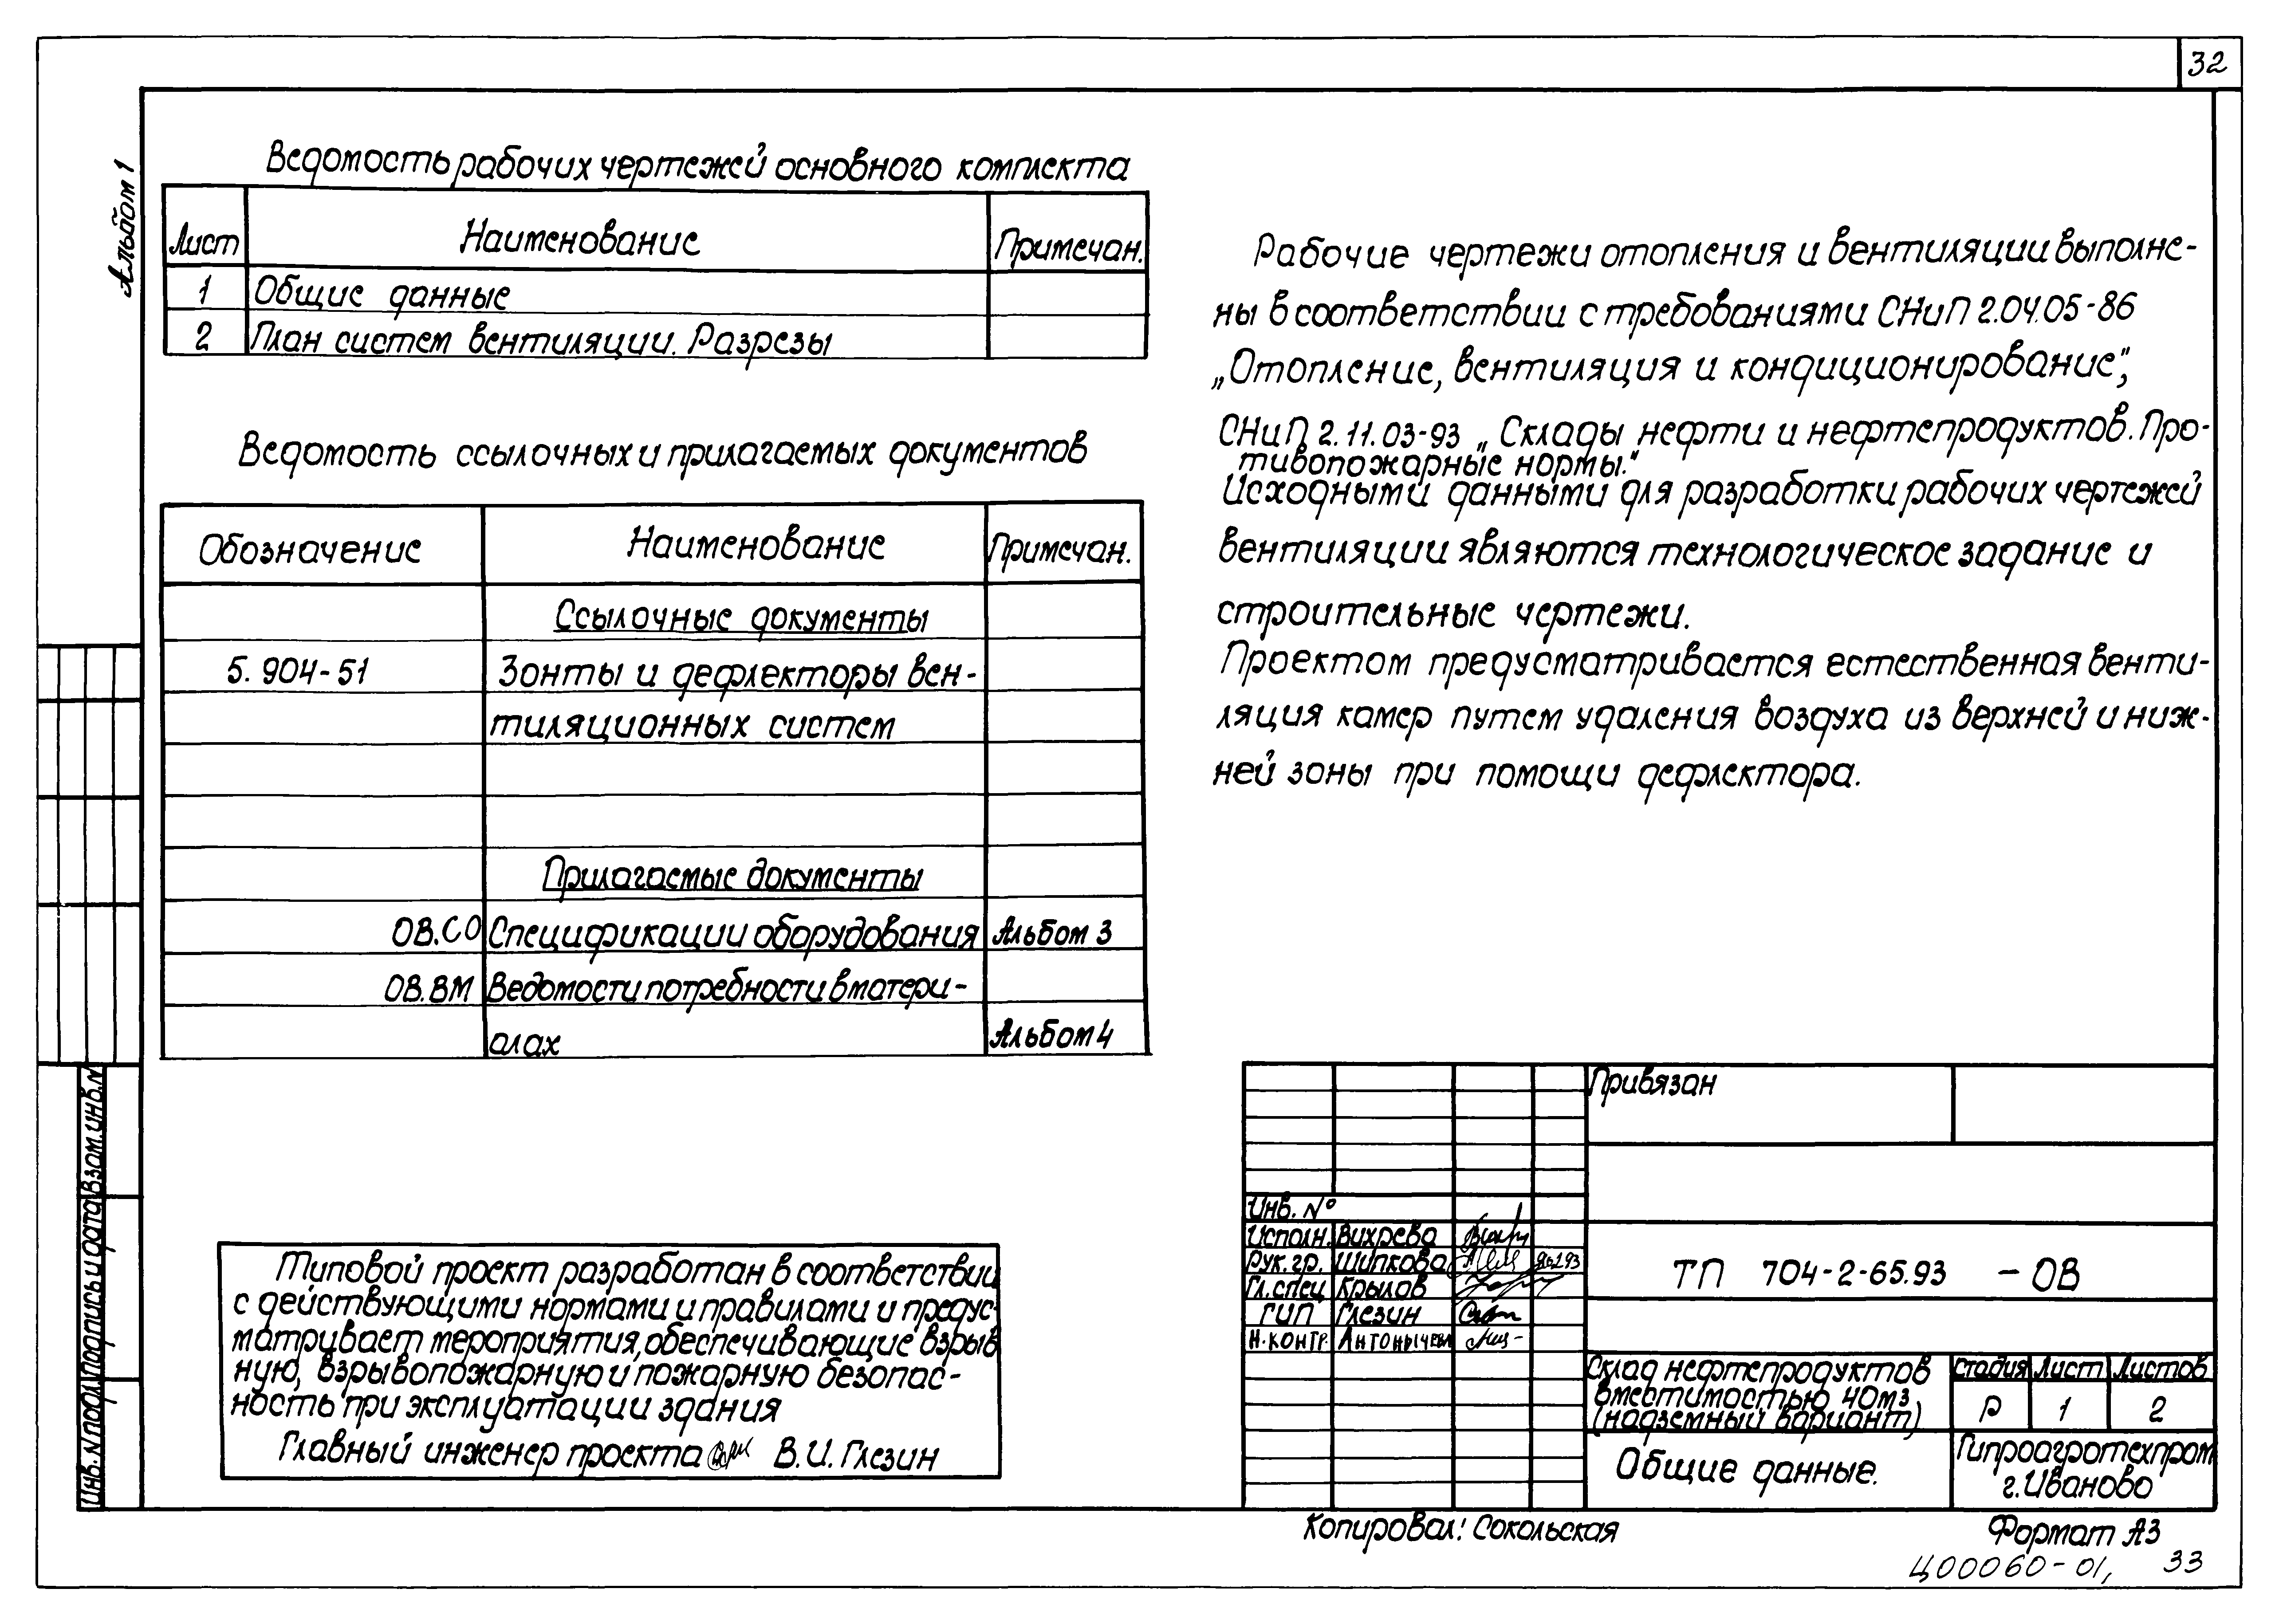 32
Альбом 1
Ведомость рабочих чертежей основного комплекта
Лист Наименование Примечан.
1 Общие данные
2 План систем вентиляции. Разрезы
Ведомость ссылочных и прилагаемых документов
Обозначение Наименование Примечан.
Ссылочные документы
5.904-51 Зонты и дефлекторы вен-
тиляционных систем
Прилагаемые документы
ОВ.СО Спецификации оборудования Альбом 3
ОВ.ВМ Ведомости потребности в матери-
алах Альбом 4
Типовой проект разработан в соответствии
с действующими нормами и правилами и предус-
матривает мероприятия, обеспечивающие взрыв
ную, взрывопожарную и пожарную безопас-
ность при эксплуатации здания
Главный инженер проекта В.И. Глезин
Рабочие чертежи отопления и вентиляции выполне-
ны в соответствии с требованиями СНиП 2.04.05-86
„Отопление, вентиляция и кондиционирование",
СНиП 2.11.03-93 „Склады нефти и нефтепродуктов. Про-
тивопожарные нормы."
Исходными данными для разработки рабочих чертежей
вентиляции являются технологическое задание и
строительные чертежи.
Проектом предусматривается естественная венти-
ляция камер путем удаления воздуха из верхней и ниж-
ней зоны при помощи дефлектора.
Привязан
Инв. №
Исполн. Вихрева
Рук. гр. Шипкова
Гл. спец Крылов
ГИП Глезин
Н. контр.
ТП 704-2-65.93 - ОВ
Склад нефтепродуктов
вместимостью 40м3
(надземный вариант)
Стадия Лист Листов
Р 1 2
Общие данные.
Гипроагротехпром
г. Иваново
Инв. N подл. Подпись и дата Взам. инв. N
Копировал: Сокольская
Формат А3
Ц00060-01, 33